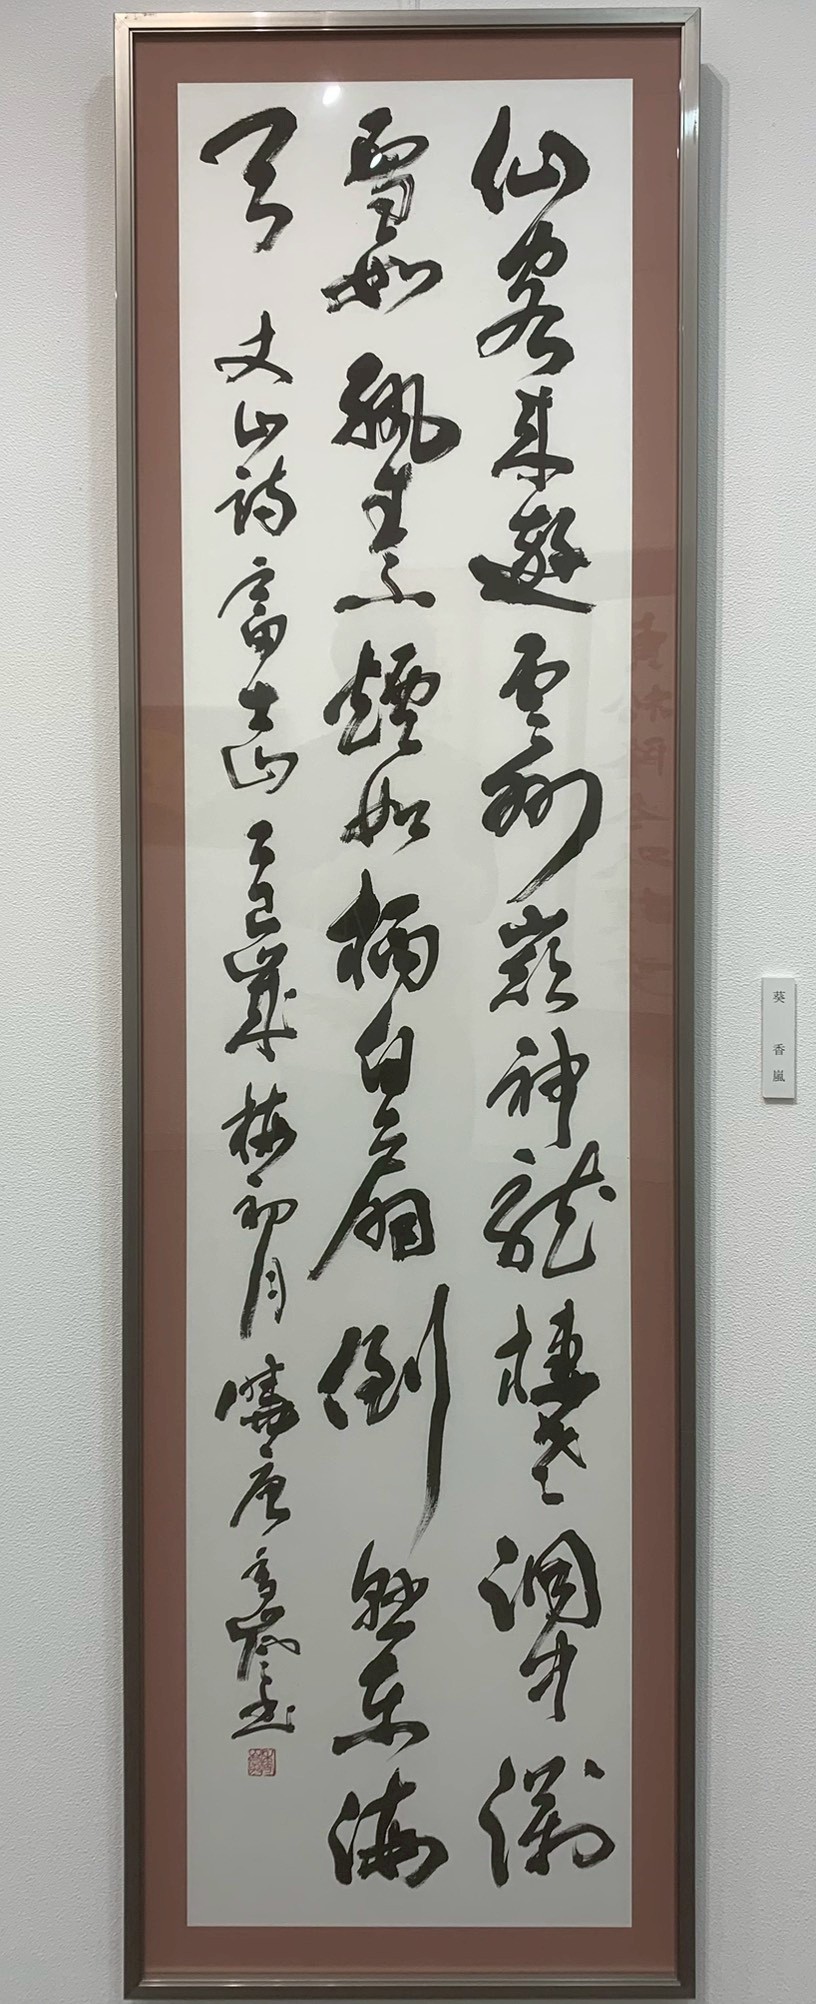 仙客来遊雲外巓神龍棲老洞中淵
雪如紈素煙如柄白扇倒懸東海
天 丈山詩富士山 乙巳歳梅初月 香嵐書
葵 香嵐